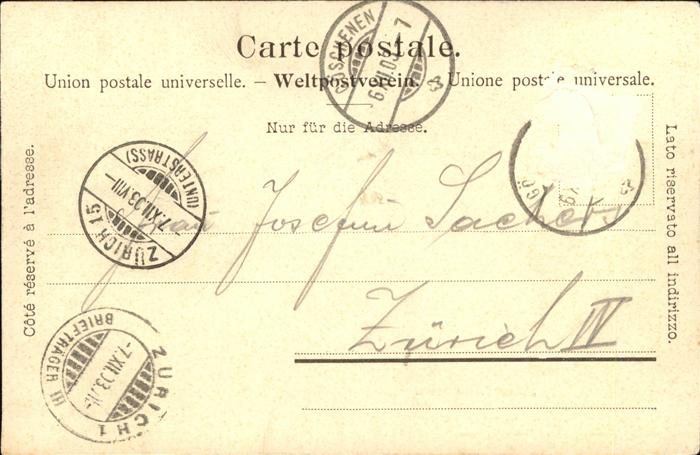 Carte postale.
Union postale universelle. – Weltpostverein. – Unione postale universale.
Nur für die Adresse.
Côté réservé à l'adresse.
Lato riservato all indirizzo.
GÖSCHENEN
6.XII.03.-7
ZÜRICH 15
(UNTERSTRASS)
7.XII.03.VIII-
Frau Josefin
Zürich IV
ZÜRICH 1
BRIEFTRÄGER
-7.XII.03.